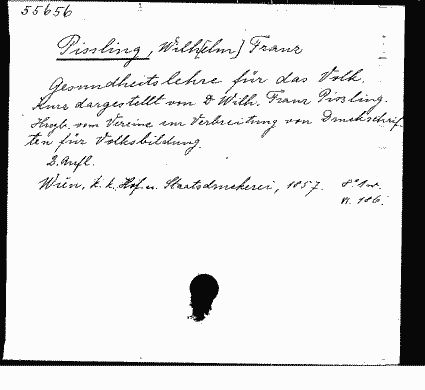 55656
Pissling, Wilh[elm] Franz
Gesundheitslehre für das Volk.
Kurz dargestellt von Dr Wilh. Franz Pissling.
Hrsgb. vom Vereine zur Verbreitung von Druckschrif-
ten für Volksbildung.
2. Aufl.
Wien, k. k. Hof- u. Staatsdruckerei, 1857. 8° 1
186.